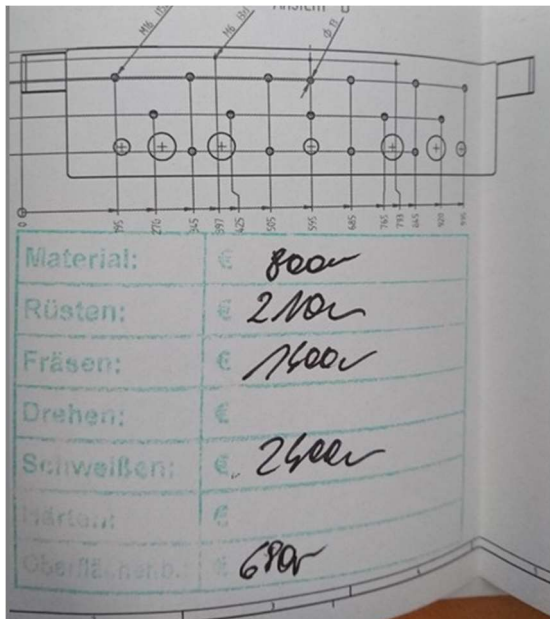 M16
M6
Ansicht
Ø 11
0
195
270
345
397
425
505
595
685
765
793
845
920
Material: € 800,-
Rüsten: € 210,-
Fräsen: € 1400,-
Drehen: €
Schweißen: € 2400,-
Härten: €
Oberflächenb.: € 680,-